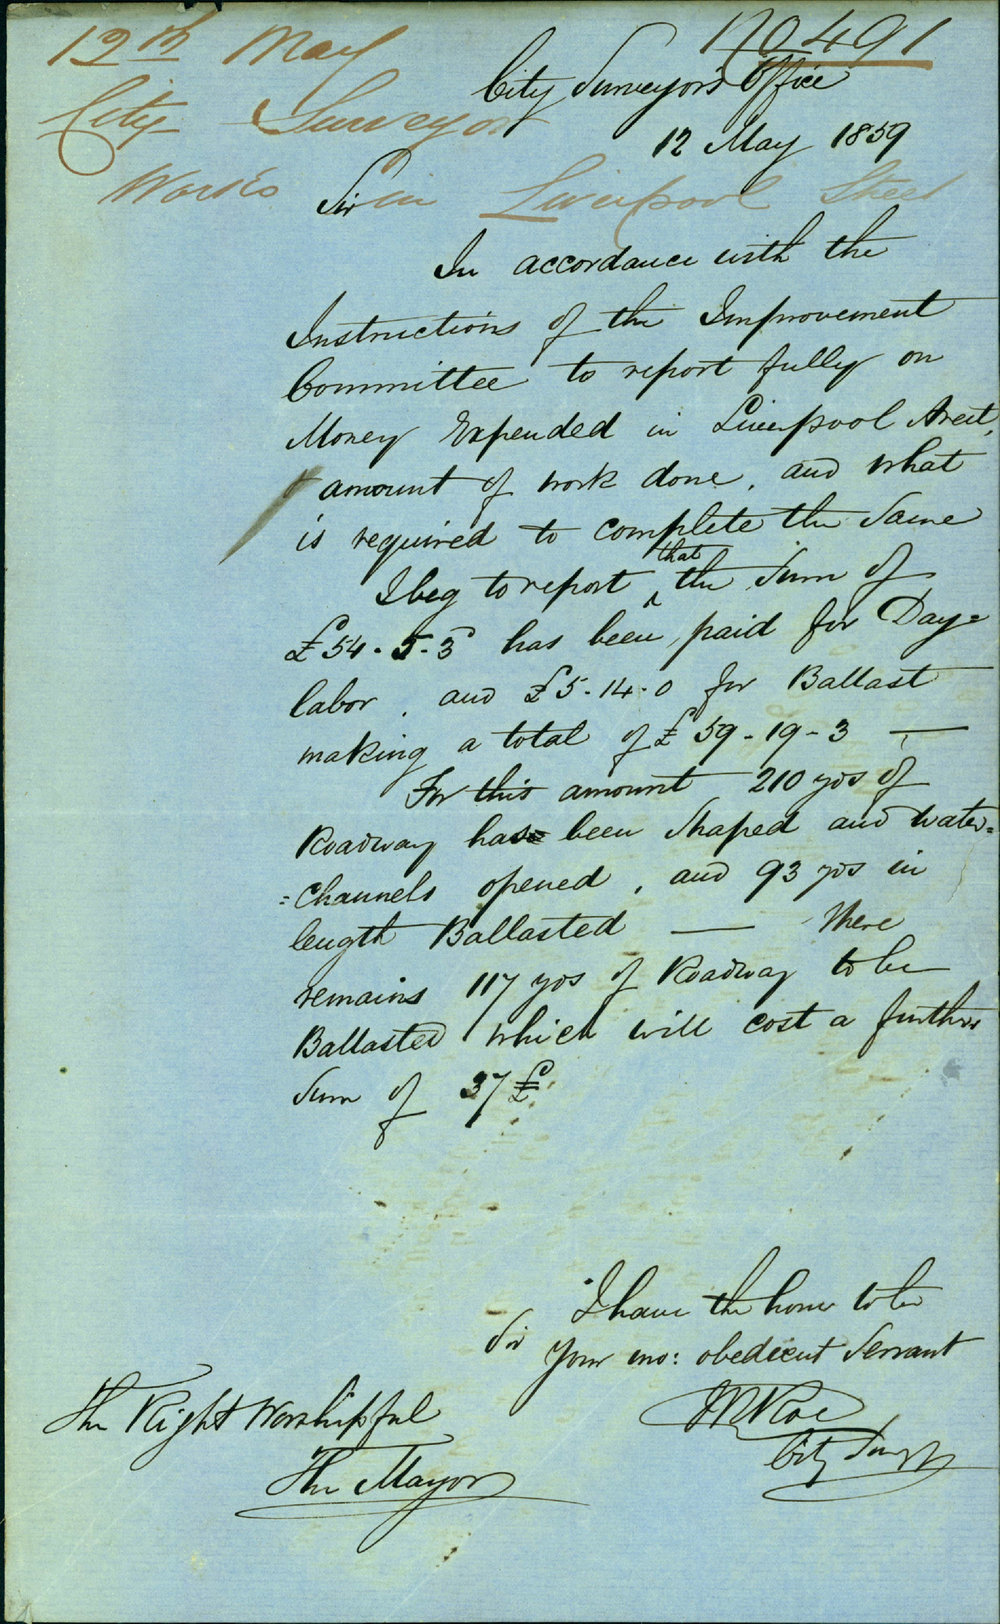 12th May No 491
City Surveyor
Works in Liverpool Street
City Surveyor's Office
12 May 1859
Sir
In accordance with the
Instructions of the Improvement
Committee to report fully on
Money Expended in Liverpool Street,
amount of work done, and what
is required to complete the Same
I beg to report that the Sum of
£54.5.3 has been paid for Day=
labor, and £5.14.0 for Ballast
making a total of £59-19-3 —
For this amount 210 yds of
Roadway has been Shaped and water=
=Channels opened, and 93 yds in
length Ballasted — There
remains 117 yds of Roadway to be
Ballasted which will cost a further
Sum of 37£
I have the honor to be
Sir
Your mo: obedient Servant
City Survyr
The Right Worshipful
The Mayor